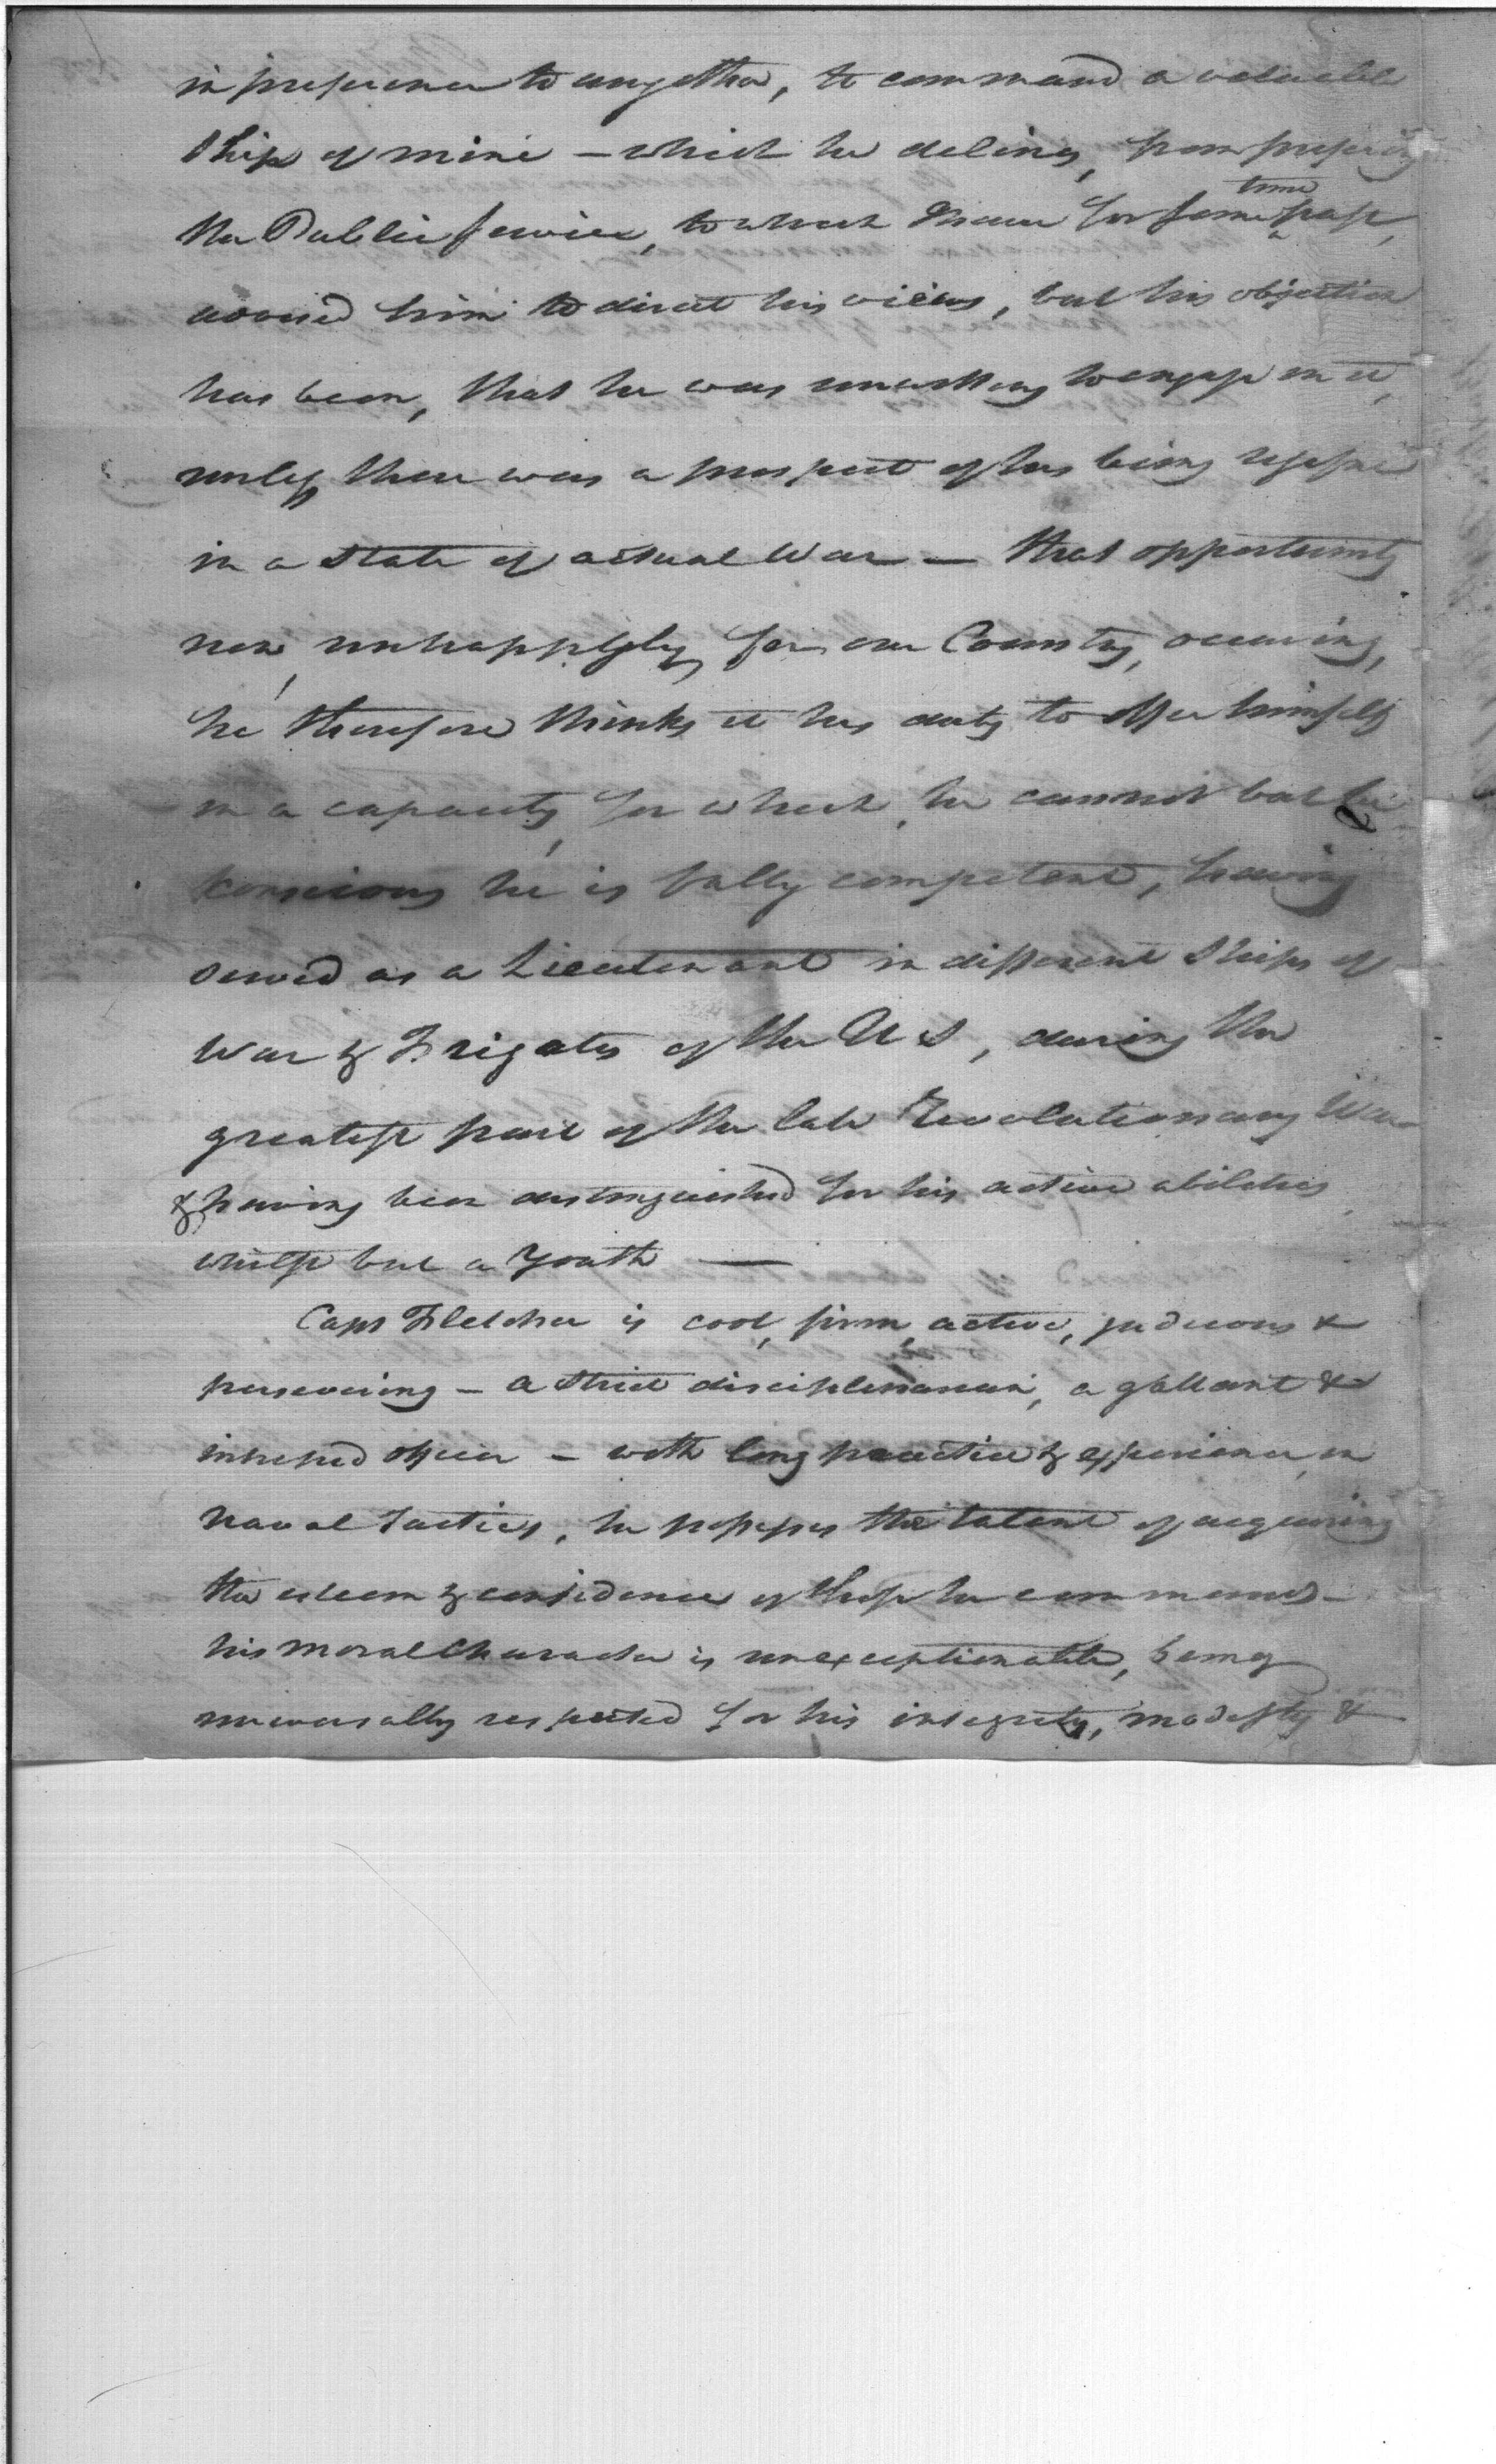 in preference to any other, to command a valuable
Ship of mine – which he declines, from prefering
the Public service, to which I have for some time past,
advised him to direct his views, but his objection
has been, that he was unwilling to engage in it,
unless there was a prospect of his being
in a State of actual War – that opportunity
now, unhappyly, for our Country, occuring,
he therefore thinks it his duty to offer himself
in a capacity, for which, he cannot but be
conscious he is fully competent, having
served as a Lieutenant in different Ships of
War & Frigates of the U S, during the
greatest part of the late Revolutionary War
& having been distinguished for his active abilities
whilst but a Youth —
Capt Fletcher is cool, firm, active, judicous &
persevering – a strict disciplinarian, a gallant &
intreped officer – with long practice & experience, in
naval tactics, he possesses the talent of acquiring
the esteem & confidence of those he commands –
his moral Character is unexceptionable, being
universally respected for his integrety, modesty &